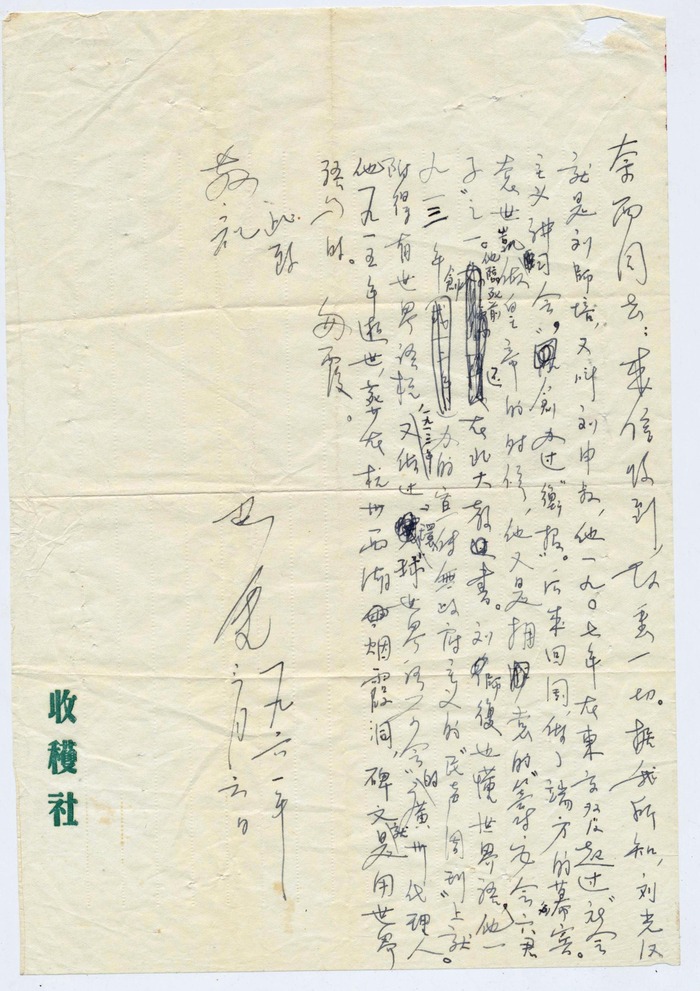 同志：来信收到，敬悉一切。据我所知，刘光汉
就是刘师培，又叫刘申叔，他一九〇七年在東京发起过“社会
主义讲习会”，创办过“衡报”。后来回国，做了端方的幕宾。
袁世凯做皇帝的时候，他又是拥袁的“筹安会六君
子”之一。他临死前还在北大教过书。刘師復也懂世界语，他一
九一三年創办的宣传無政府主义的“民声周刊”上就
附得有世界语栏，一九一三年又做过“環球世界语学会”的廣州代理人。
他一九一五年逝世，葬在杭州西湖烟霞洞，碑文就是用世界
语写的。
此致
敬礼
巴金
一九六一年
六日
收穫社